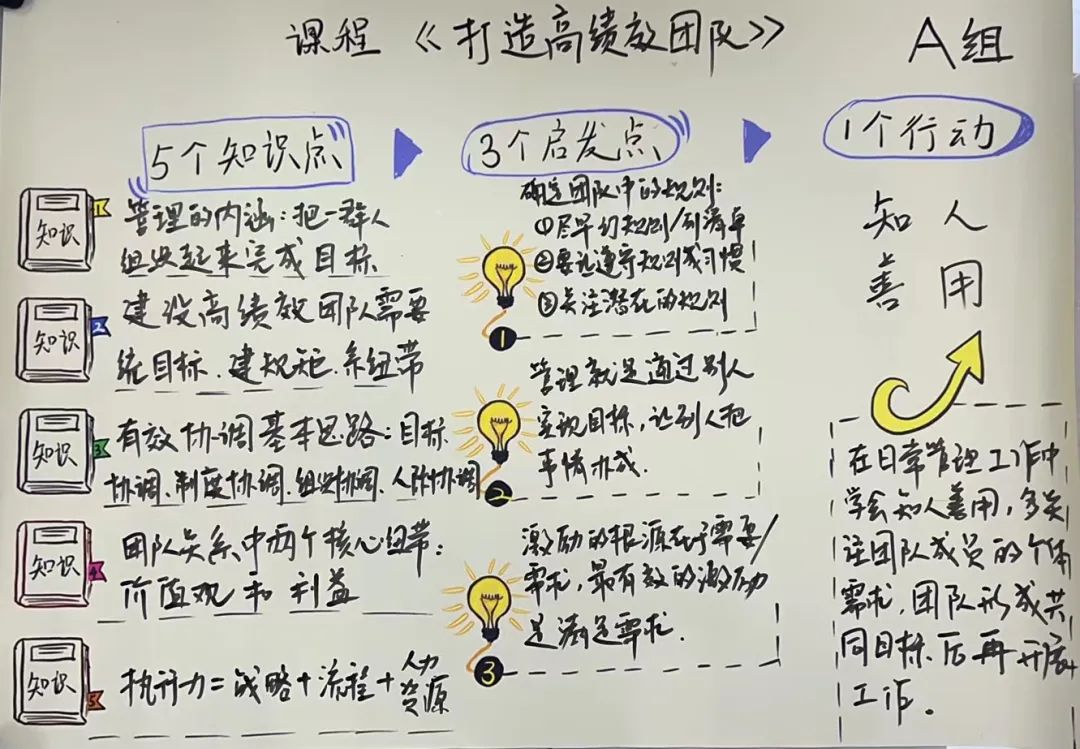 课程《打造高绩效团队》
A组
5个知识点
知识
1
管理的内涵:把一群人
组织起来完成目标
知识
2
建设高绩效团队需要
统目标、建规矩、系纽带
知识
3
有效协调基本思路:目标
协调、制度协调、组织协调、人际协调
知识
4
团队关系中两个核心纽带:
价值观和利益
知识
5
执行力=战略+流程+人力
资源
3个启发点
确定团队中的规则:
①尽早订规则/列清单
②要让遵守规则成习惯
③关注潜在的规则
1
管理就是通过别人
实现目标,让别人把
事情办成.
2
激励的根源在于需要/
需求,最有效的激励
是满足需求.
3
1个行动
知人
善用
在日常管理工作中
学会知人善用,多关
注团队成员的个体
需求,团队形成共
同目标后再开展
工作.